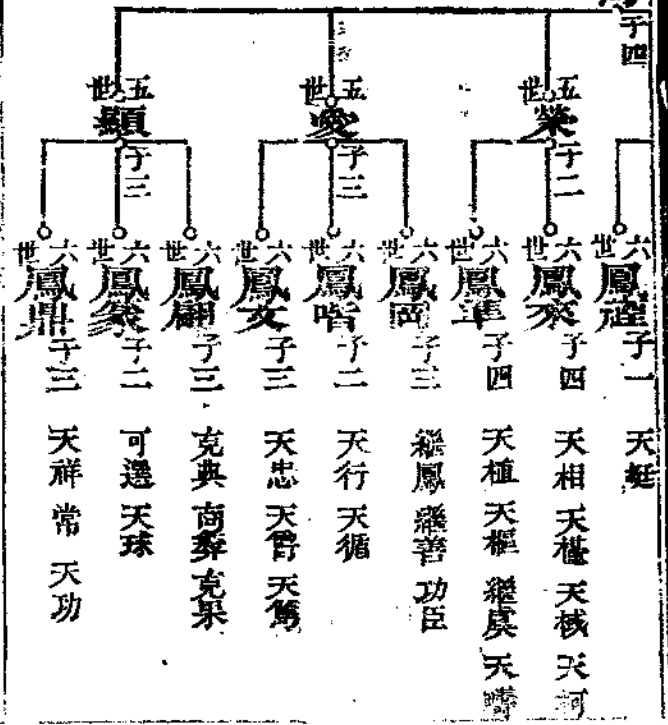 子四
五世 榮 子二
五世 愛 子三
五世 顯 子三
六世 鳳 子一 天挺
六世 鳳來 子四 天相 天 天棫 天柯
六世 鳳 子四 天植 天樞 繼虞 天
六世 鳳岡 子三 繼鳳 繼善 功臣
六世 鳳喈 子二 天行 天循
六世 鳳文 子三 天忠 天 天
六世 鳳翩 子三 克典 商彝 克果
六世 鳳象 子二 可選 天球
六世 鳳鼎 子三 天祥 常 天功